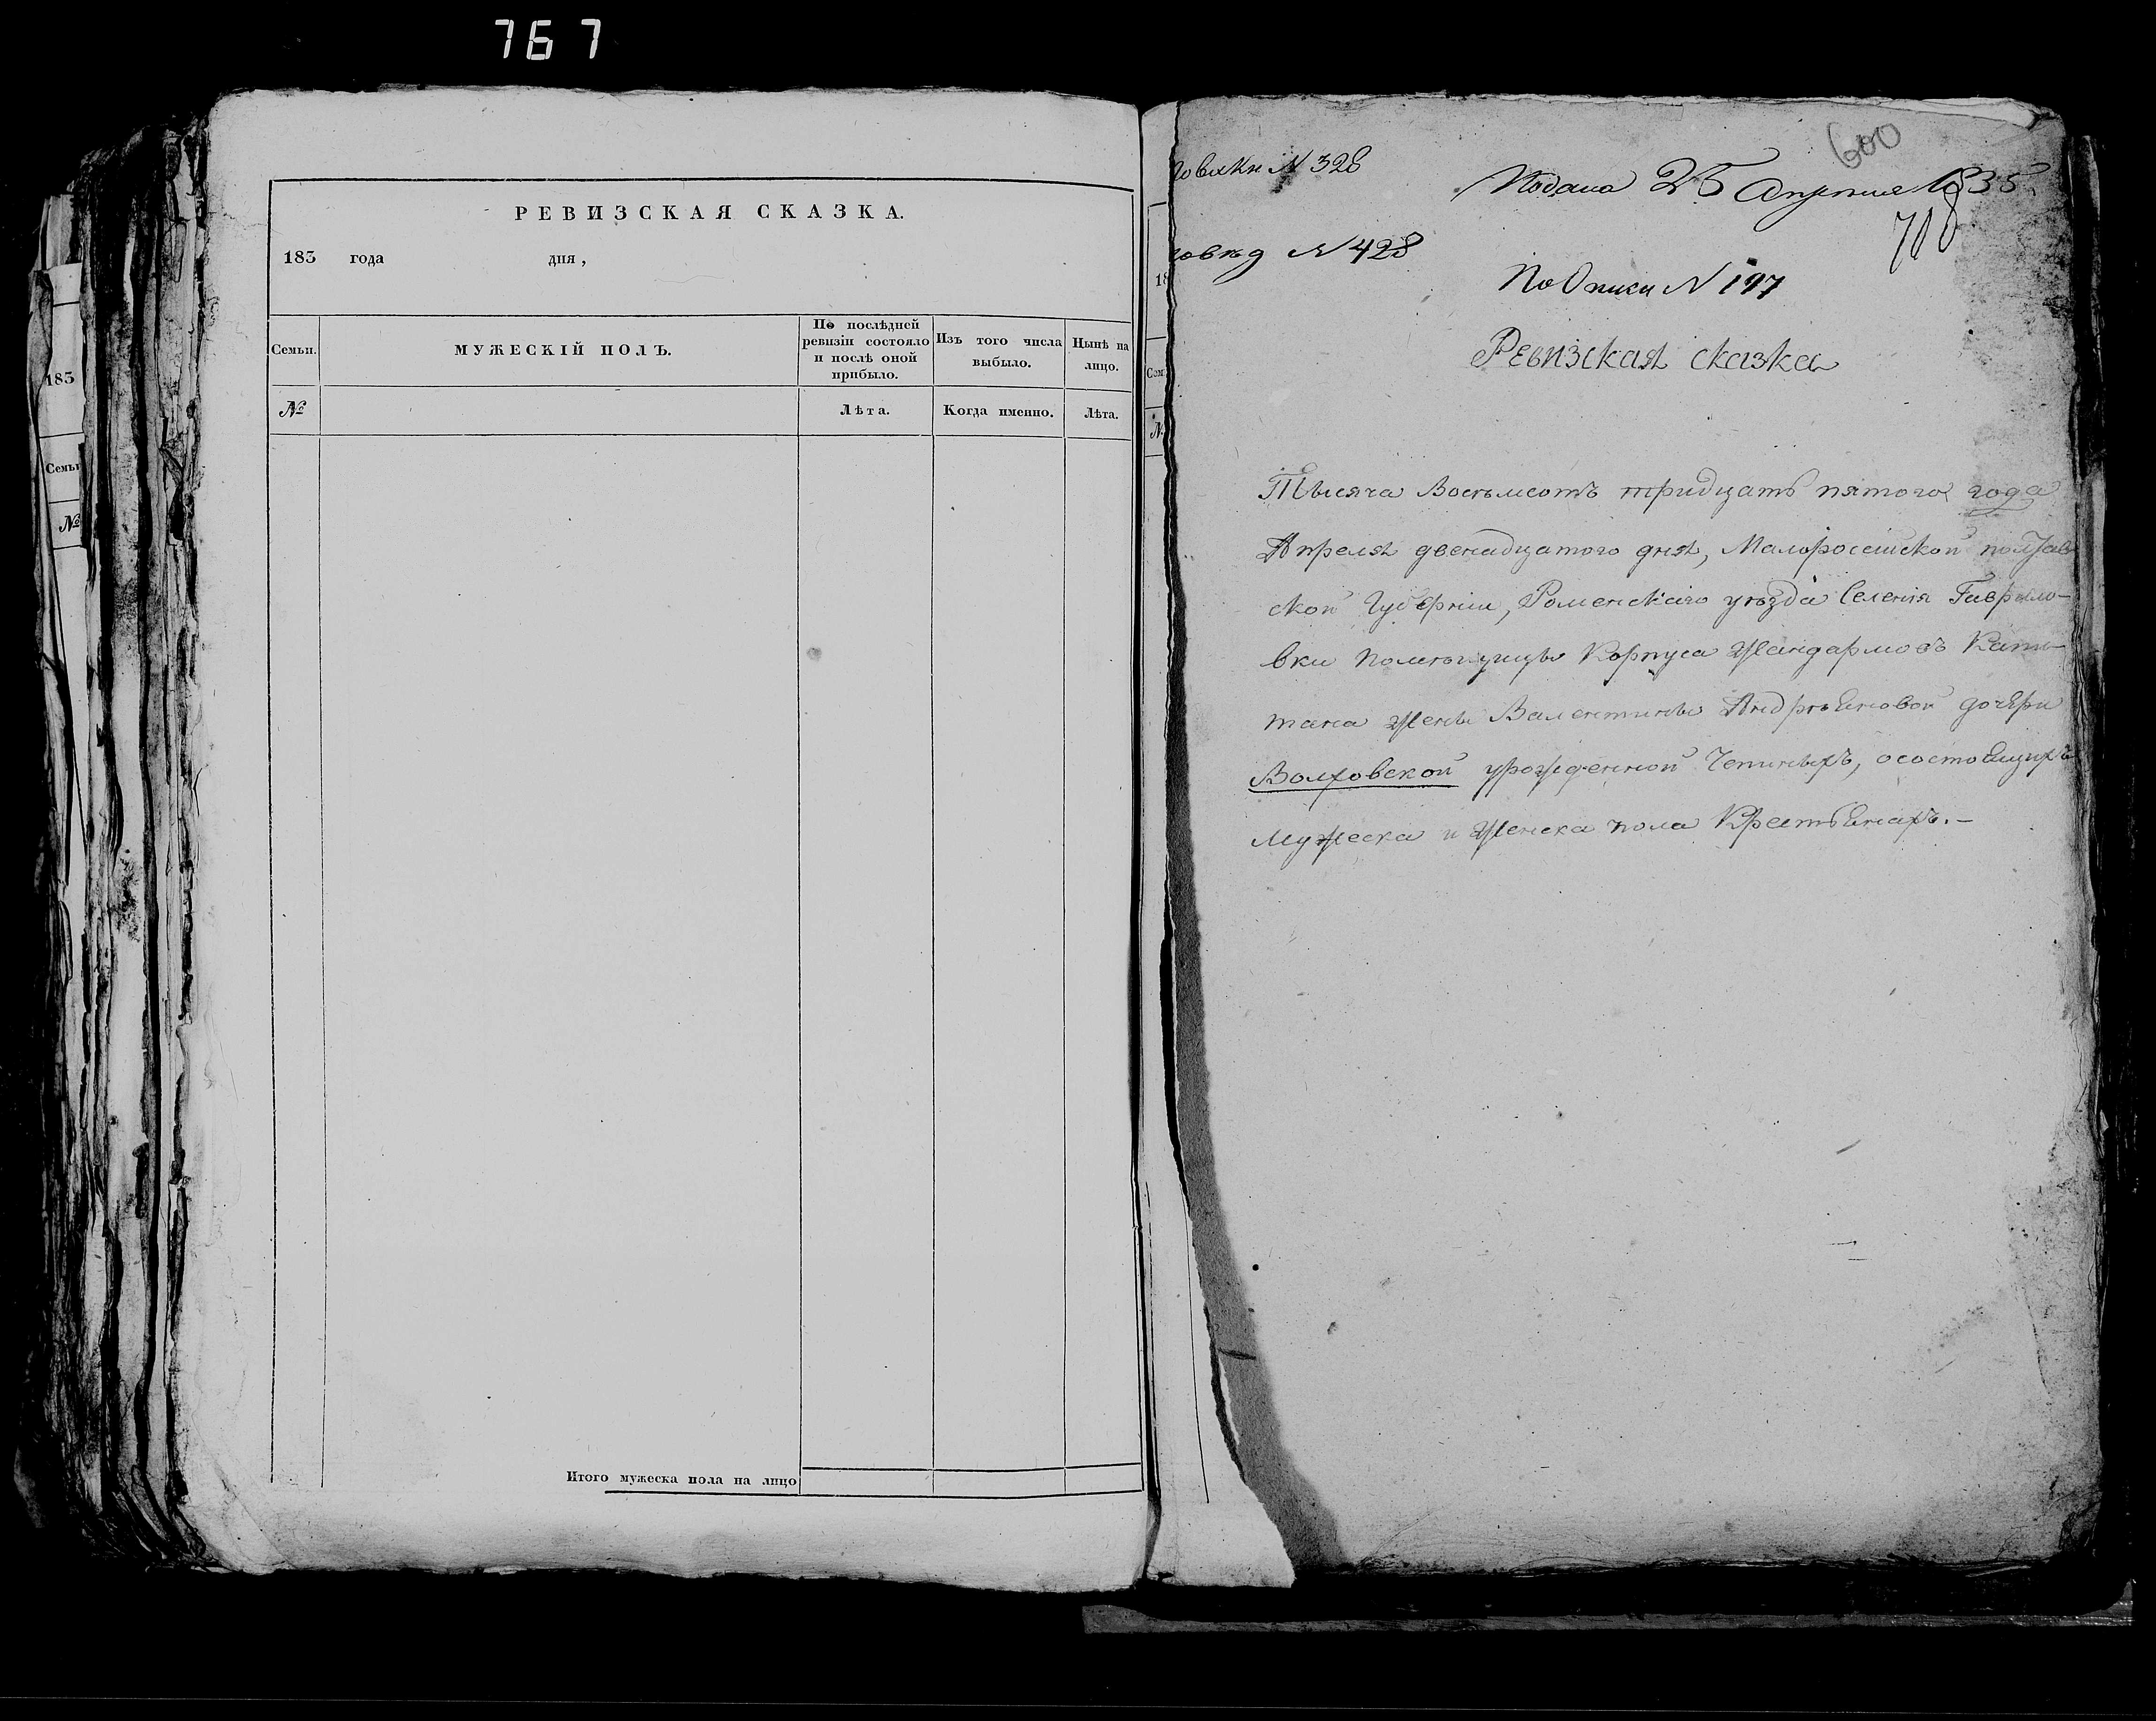 767
183
Семьи
№
РЕВИЗСКАЯ СКАЗКА.
183 года дня,
Семьи. МУЖЕСКІЙ ПОЛЪ. По послѣдней ревизіи состояло и послѣ оной прибыло. Изъ того числа выбыло. Нынѣ на лицо.
№ Лѣта. Когда именно. Лѣта.
Итого мужеска пола на лицо
18
Сем
№
600
N 328
Подана 25 Апрѣля 1835.
708
N 428
По Описи N 197
Ревизская сказка
Тысяча Восемьсотъ тридцать пятого года
Апреля двенадцатого дня, Малоросейской полтав
ской Губерніи, Роменскаго уѣзда Селенія Гаврило-
вки помѣщицы Корпуса Жандармовъ Капи-
тана жены Валентины Андрѣевой дочери
Волховской урожденной, осостоящихъ
Мужеска и Женска пола Крестьянахъ.-